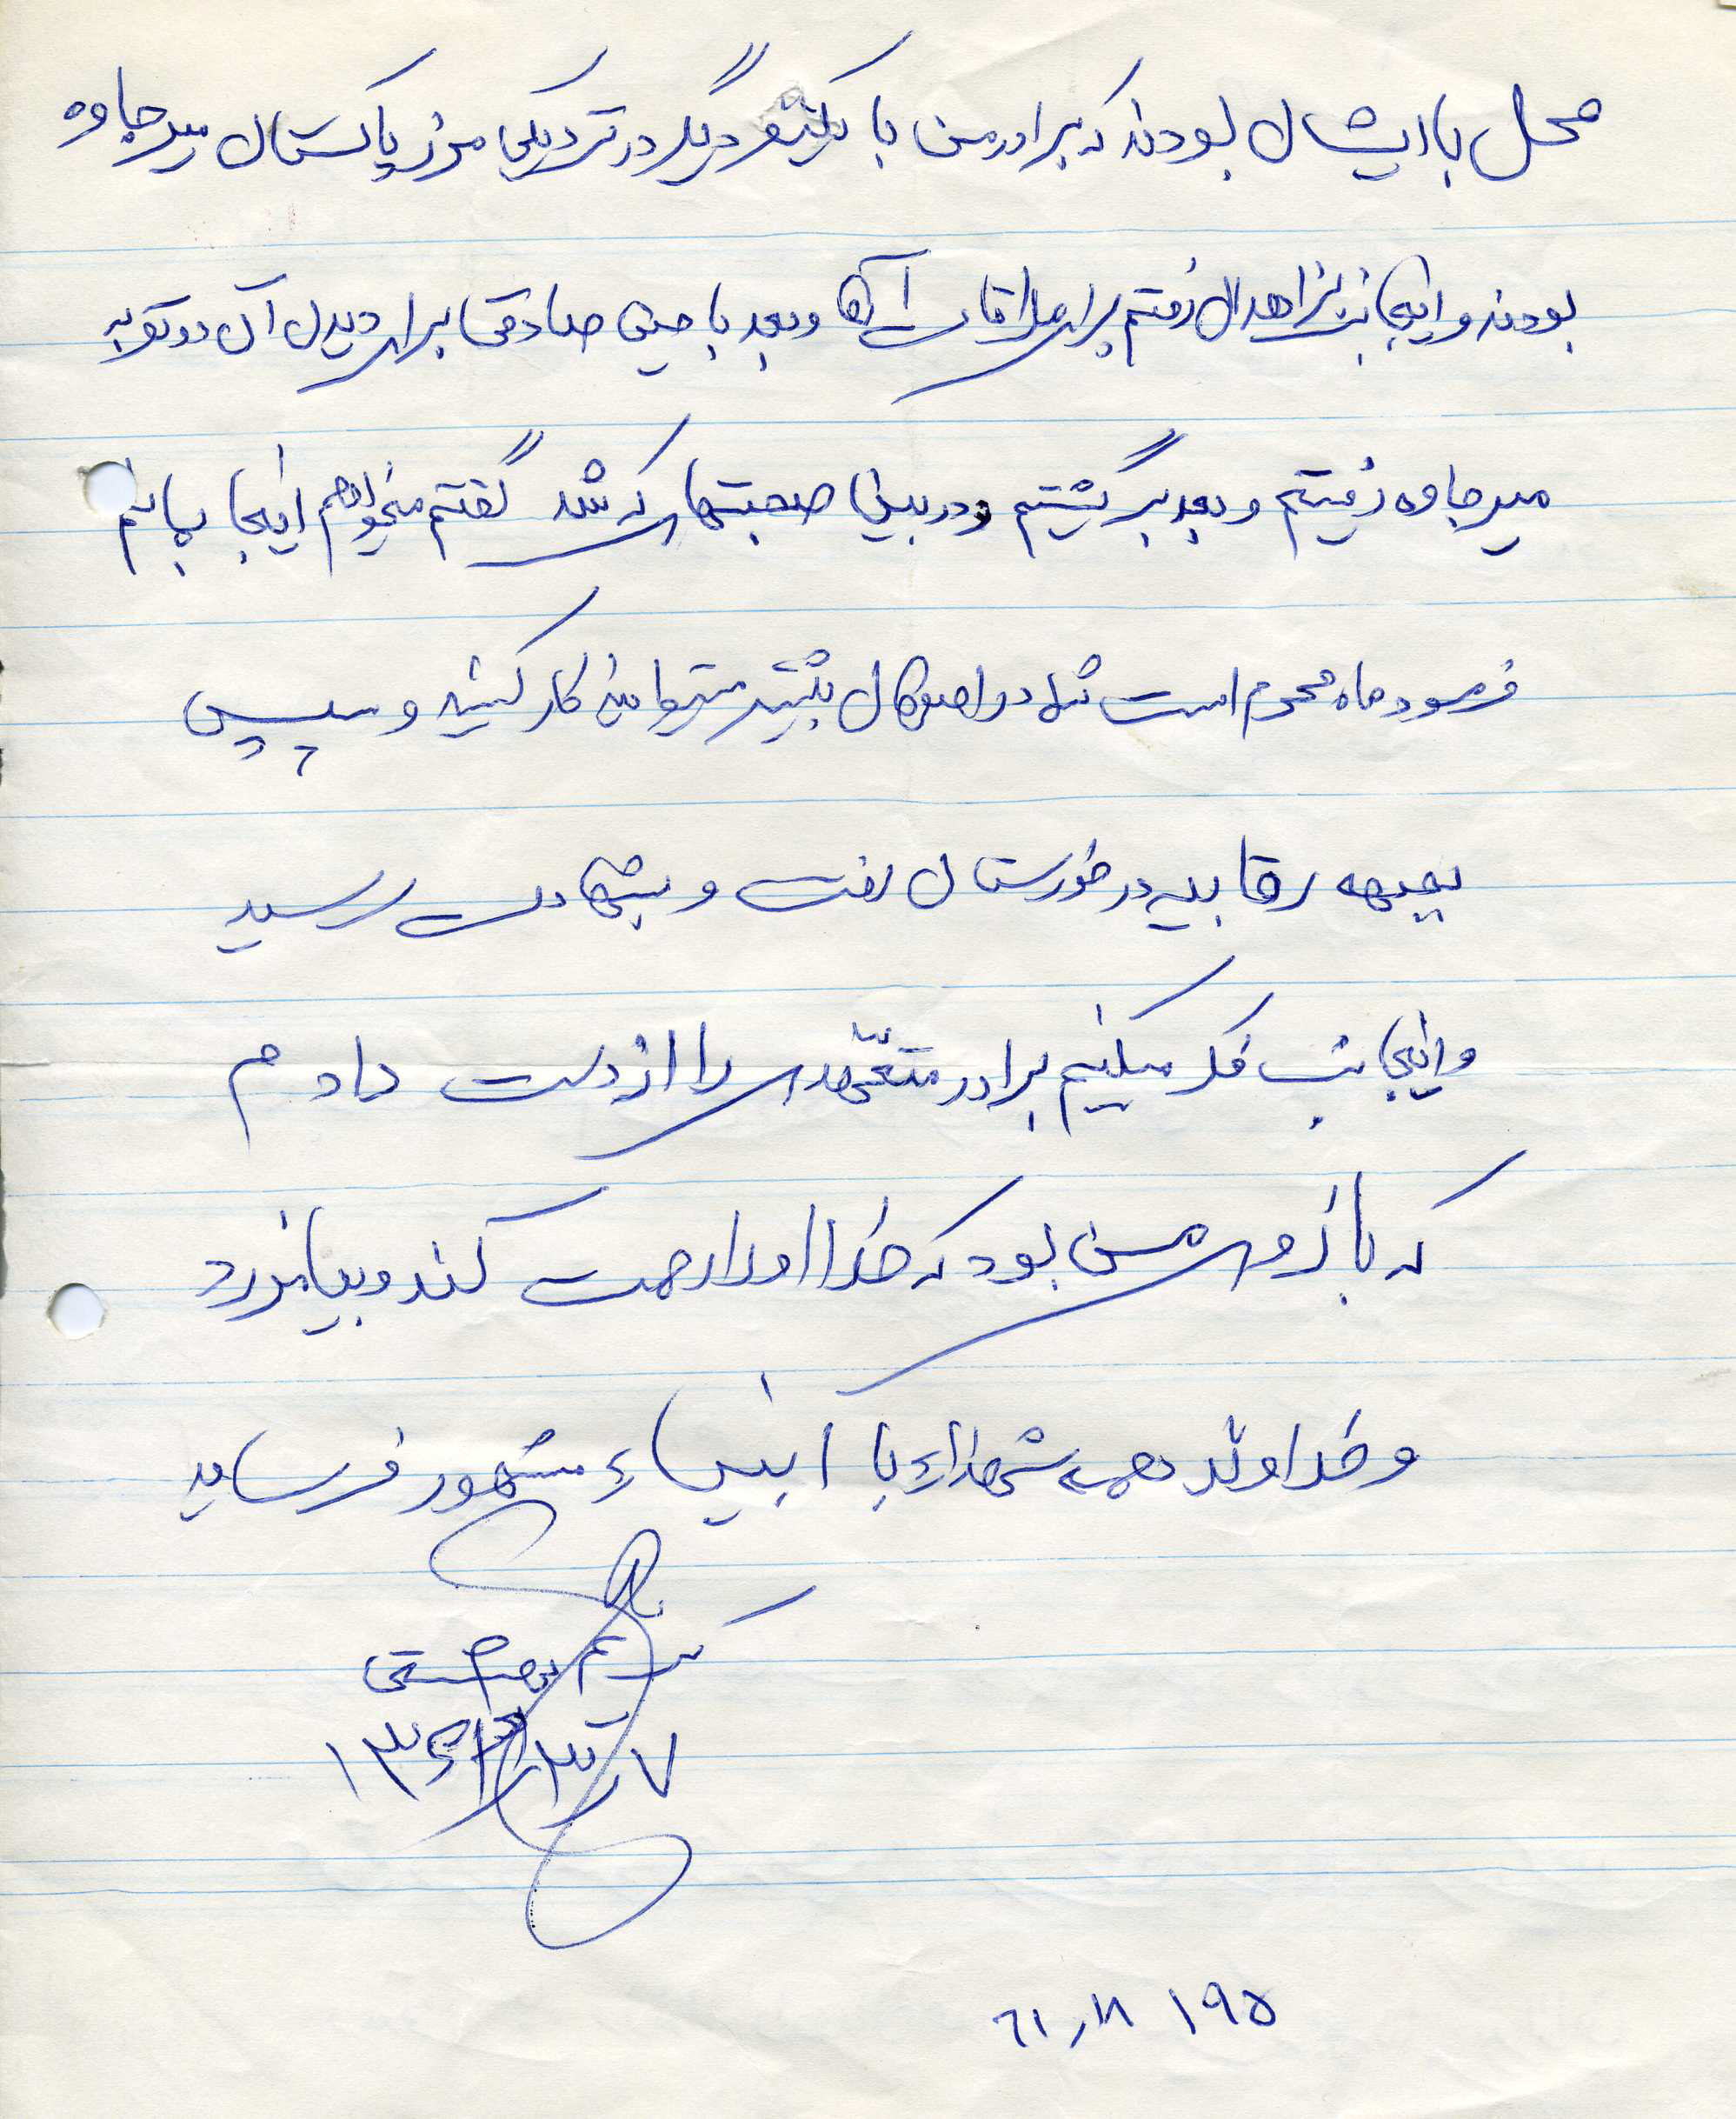 محل با ایشان بودند که برادر من با یکنفر دیگر در نزدیکی مرز پاکستان میرجاوه
بودند و اینجانب بزاهدان رفتم برای ملاقات آنها و بعد با حسین صادقی برای دیدن آن دو نفر به
میرجاوه رفتیم و بعد برگشتیم و در بین صحبتهای که شد گفتم میخواهم اینجا بمانم
فرمود ماه محرم است شما در اصفهان بیشتر میتوانید کار کنید و سپس
بجبهه رقابیه در خوزستان رفت و بشهادت رسید
و اینجانب فکر میکنیم برادر متعهدی را از دست دادم
که بازوی من بود که خدا او را رحمت کند و بیامرزد
و خداوند همه شهداء با انبیاء محشور فرماید
کریم
۷
۱۹۵ ۶۱٫۱۱